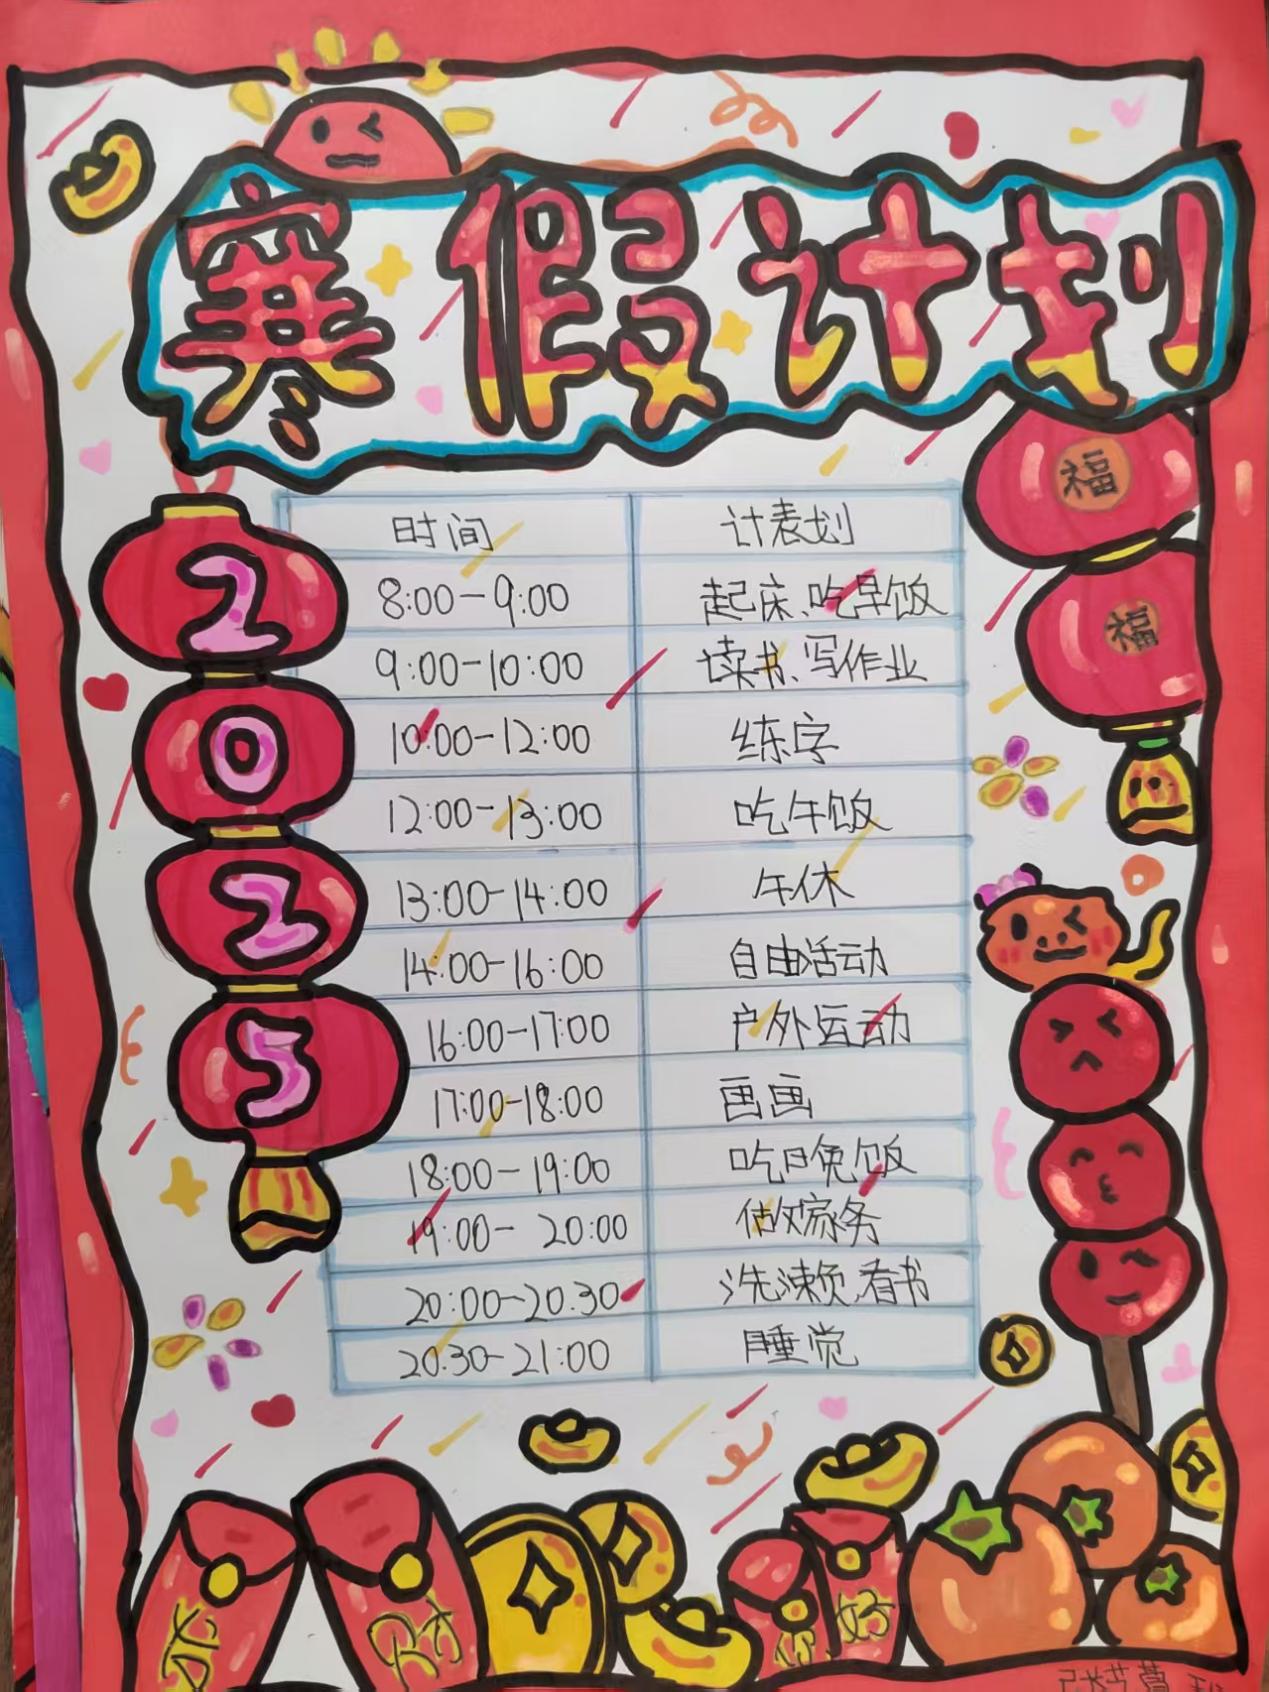 寒假计划
福
福
2
0
2
5
时间 计表划
8:00-9:00 起床、吃早饭
9:00-10:00 读书、写作业
10:00-12:00 练字
12:00-13:00 吃午饭
13:00-14:00 午休
14:00-16:00 自由活动
16:00-17:00 户外运动
17:00-18:00 画画
18:00-19:00 吃晚饭
19:00-20:00 做家务
20:00-20:30 洗漱、看书
20:30-21:00 睡觉
财
你好